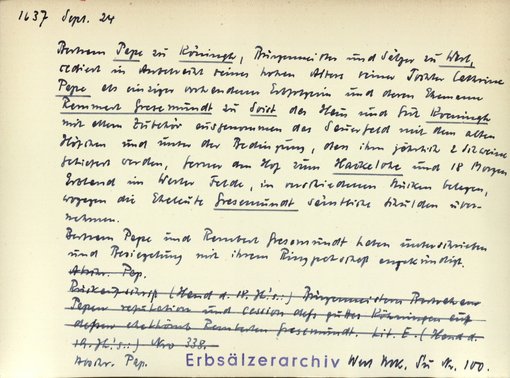 1637 Sept. 24
Bertram Pape zu Köningh, Bürgermeister und Sälzer zu Werl,
cediert in Anbetracht seines hohen Alters seiner Tochter Cathrine
Pape als einziger vorhandenen Erbin und deren Ehemann
Remmert Gresemundt zu Soist das Haus und Gut Koeningh
mit allem Zubehör ausgenommen das Sauerfeld mit dem alten
Höfchen und unter der Bedingung, dass ihm jährlich 2 Schweine
gefüttert werden, ferner den Hof zum Hackelohe und 18 Morgen
Erbland im Werler Felde, in verschiedenen Stücken belegen,
wogegen die Eheleute Gresemundt sämtliche Schulden über-
nehmen.
Bertram Pape und Rembert Gresemundt haben unterschrieben
und Besiegelung mit ihrem Ringpetschaft angekündigt.
Abschr. Pap.
Rückaufschrift (Hand d. 18. Jh's.:) Bürgermeistern Bertrahmen
Papen reputation und cession dess guttes Könningen auff
dessen Remberten Gresemundt. Lit. E. (Hand d.
19. Jh.'s:) Nro 338.
Abschr. Pap. Erbsälzerarchiv Werl Urk. Nr. 100.